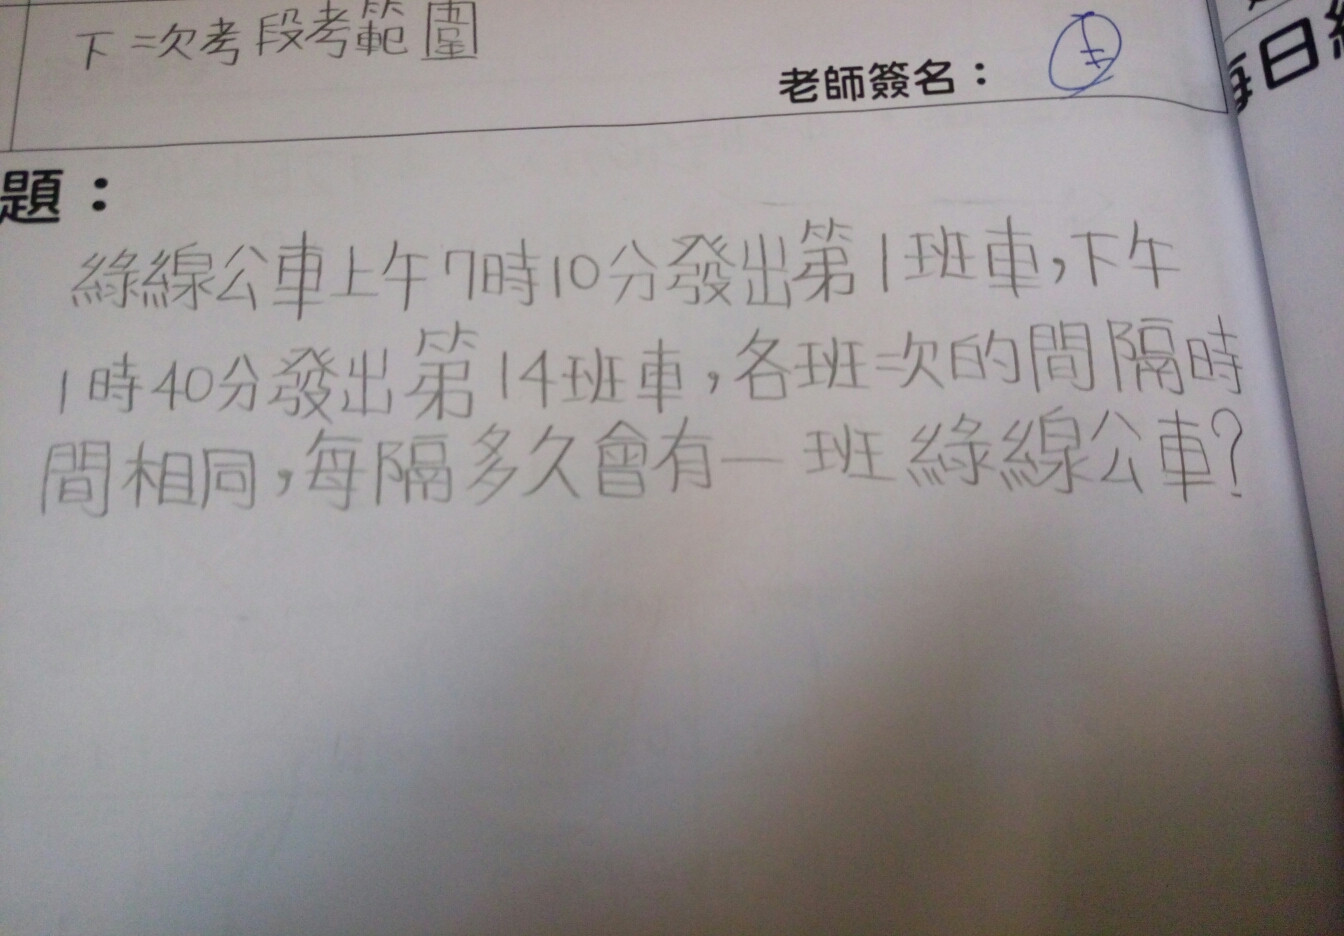 下二次考段考範圍
老師簽名：
每日
題：
綠線公車上午7時10分發出第1班車,下午
1時40分發出第14班車,各班次的間隔時
間相同,每隔多久會有一班綠線公車?